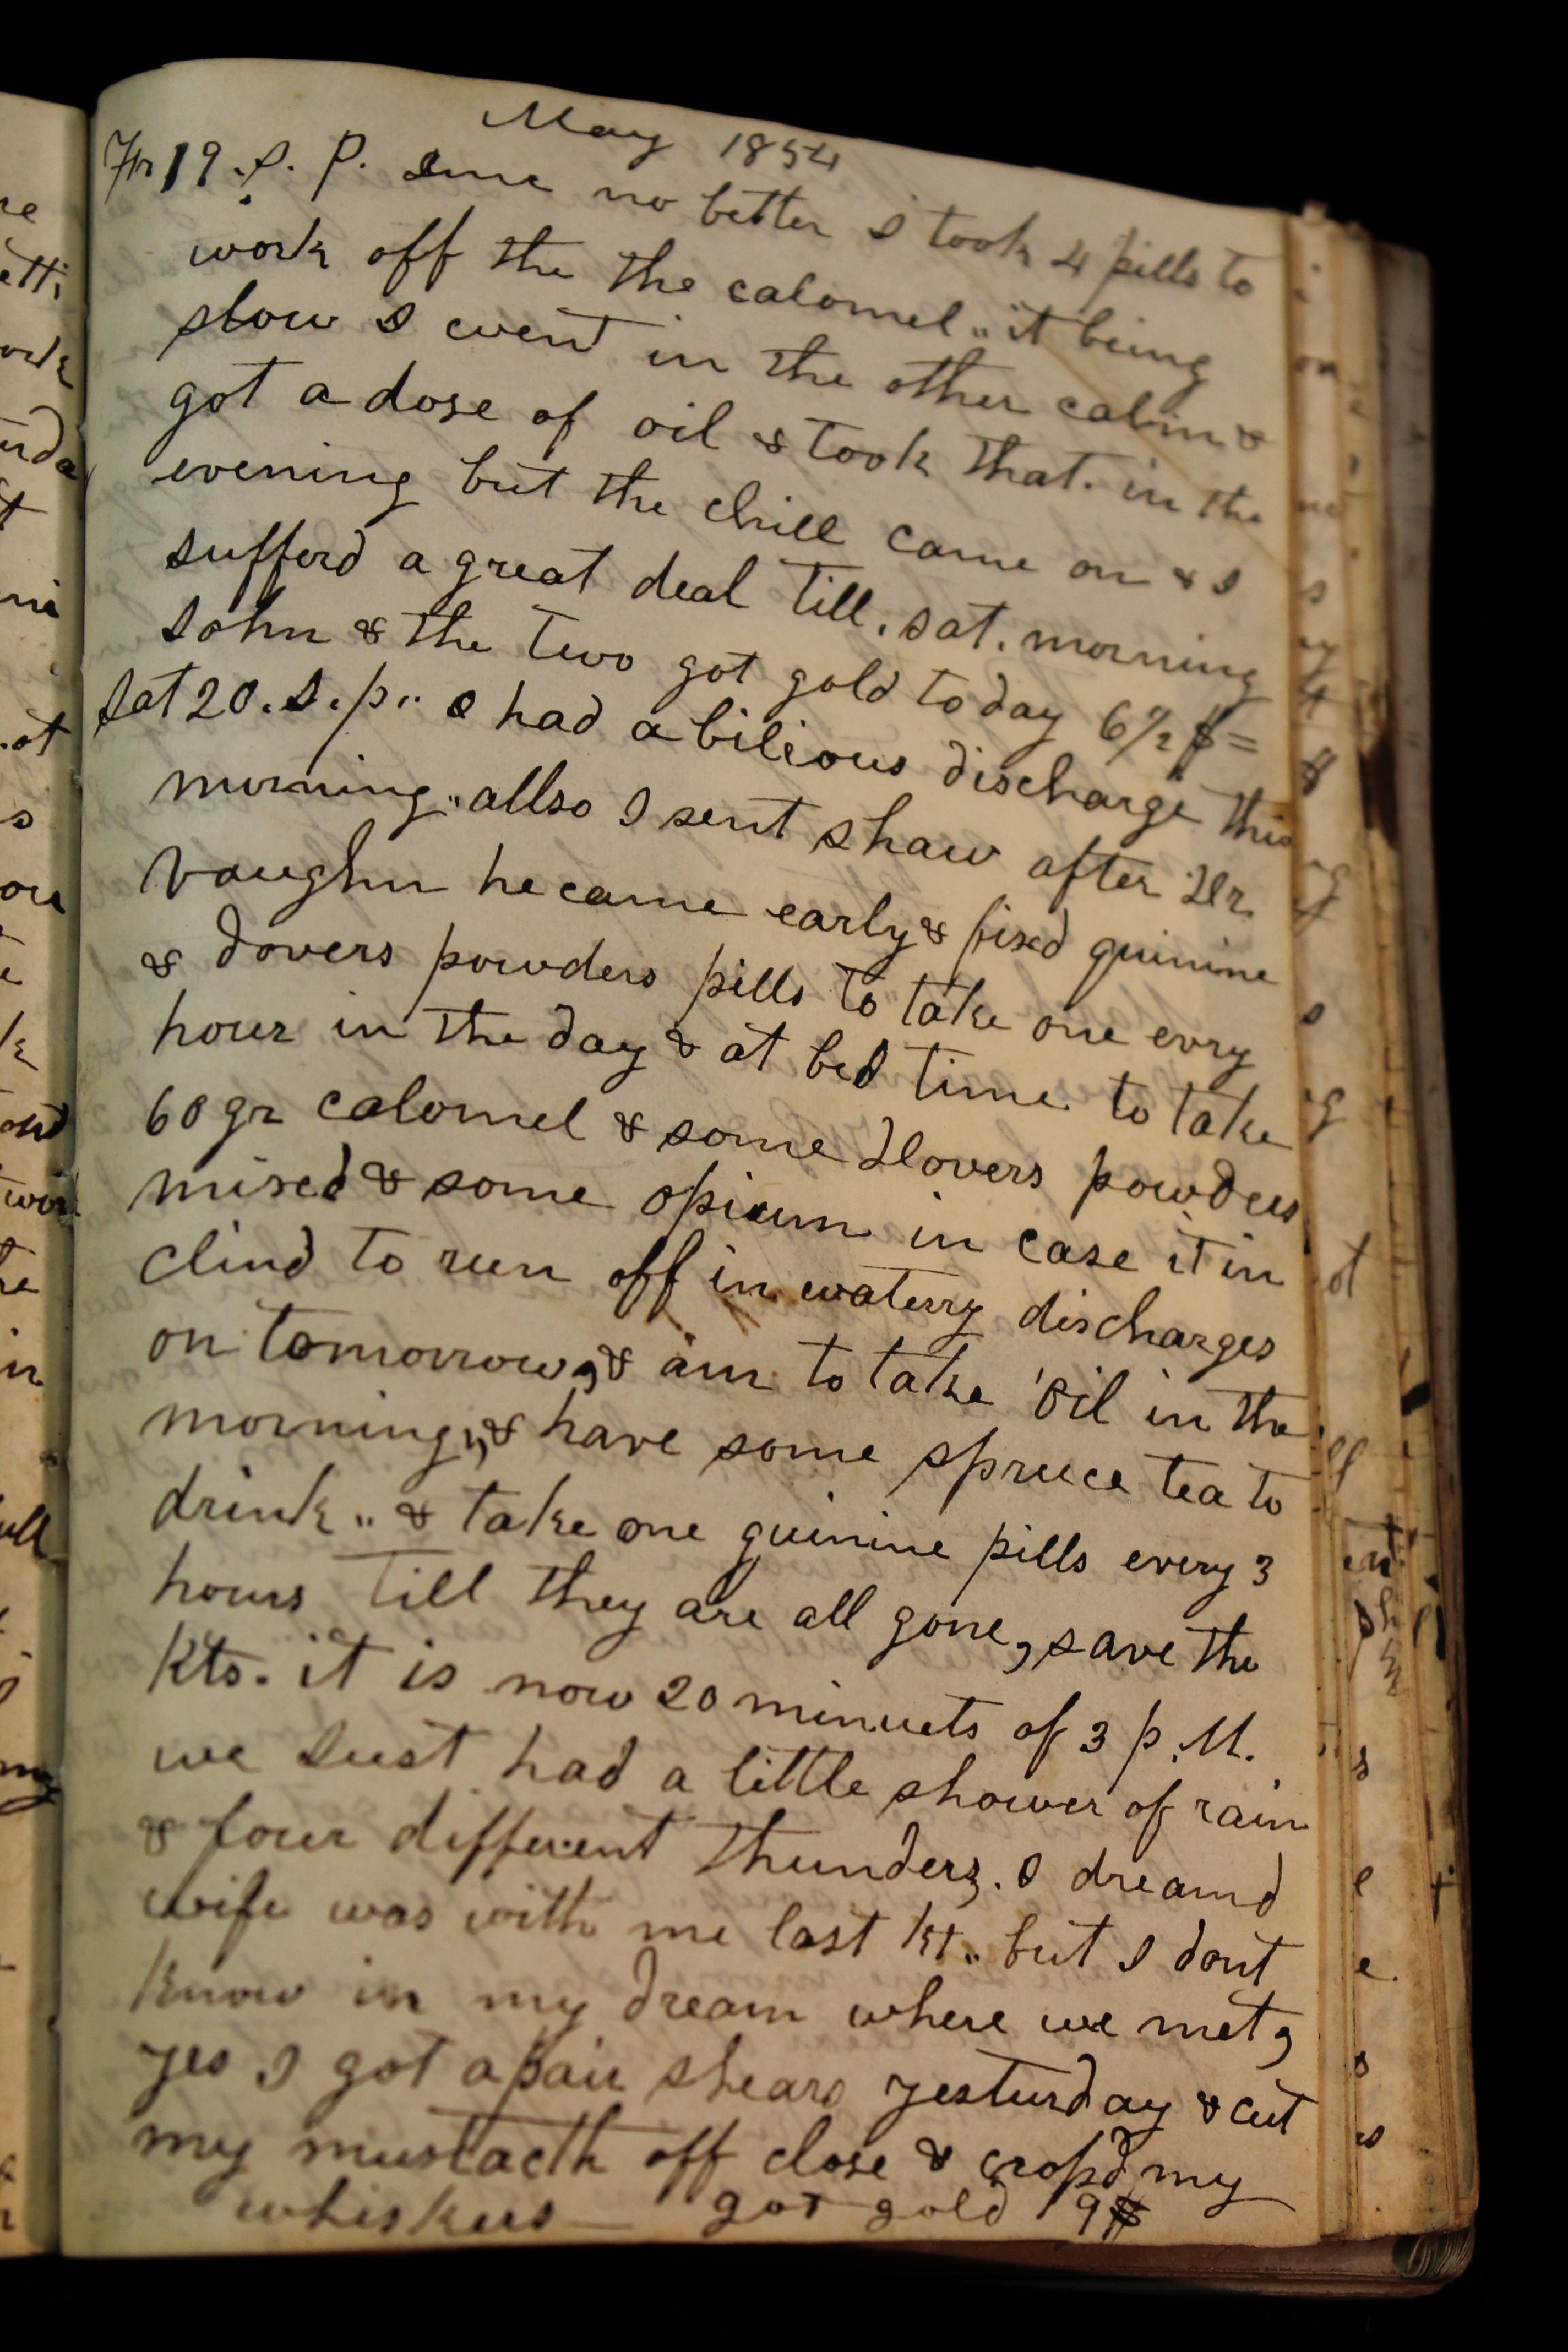 May 1854
Fr 19. S. P. I me no better I took 4 pills to
work off the the calomel „ it being
slow I went in the other cabin &
got a dose of oil & took that. in the
evening but the chill came on & I
sufferd a great deal till. sat. morning
John & the two got gold today 6½ $ =
Sat 20. S. p.. I had a bilious discharge this
morning „ allso I sent shaw after Dr
Vaughn he came early & fixd quinine
& dovers powders pills to take one evry
hour in the day & at bed time to take
60 gr calomel & some Dovers powders
mixed & some opium in case it in
clind to run off in waterry discharges
on tomorrow, & am to take oil in the
morning,, & have some spruce tea to
drink „ & take one quinine pills every 3
hours till they are all gone, save the
Kts. it is now 20 minuets of 3 p. M.
we Just had a little shower of rain
& four different thunders. I dreamd
wife was with me last Kt.. but I dont
know in my dream where we met,
yes I got a pair shears yesturday & cut
my mustacth off close & cropd my
whiskers — got gold 9$